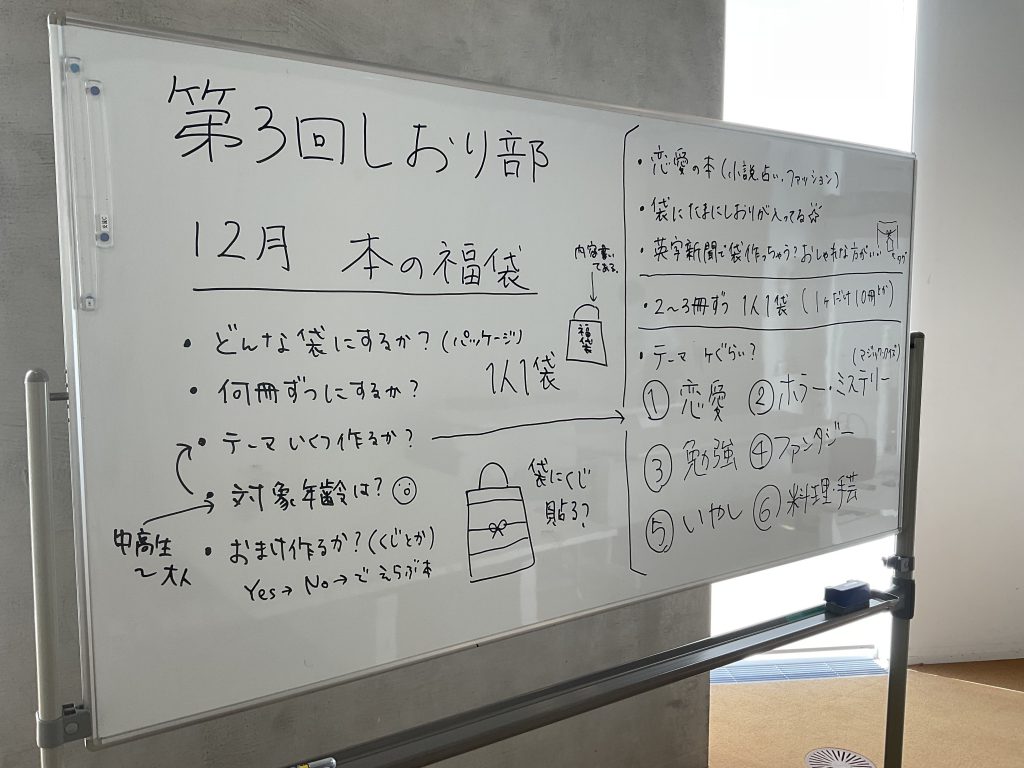 第3回しおり部
12月 本の福袋
内容書いてある。
福袋
・どんな袋にするか?(パッケージ)
・何冊ずつにするか?
1人1袋
・テーマいくつ作るか?
・対象年齢は?
中高生
〜大人
・おまけ作るか?(くじとか)
Yes→ No→で えらぶ本
袋にくじ
貼る?
・恋愛の本(小説、占い、ファッション)
・袋にたまにしおりが入ってる
・英字新聞で袋作っちゃう?おしゃれな方がいい
・2〜3冊ずつ 1人1袋 (1ヶだけ10冊とか)
・テーマ ケぐらい?
① 恋愛
② ホラー・ミステリー
③ 勉強
④ ファンタジー
⑤ いやし
⑥ 料理・手芸